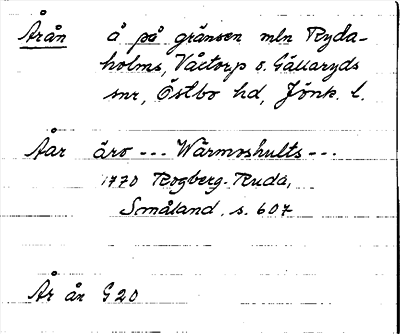 Årån å på gränsen mln Ryda-
holms, Våctorp o. Gällaryds
snr, Östbo hd, Jönk. l.
Aar äro --- Wärmoshults ---
1770 Rogberg-Ruda,
Småland, s. 607
År år G20